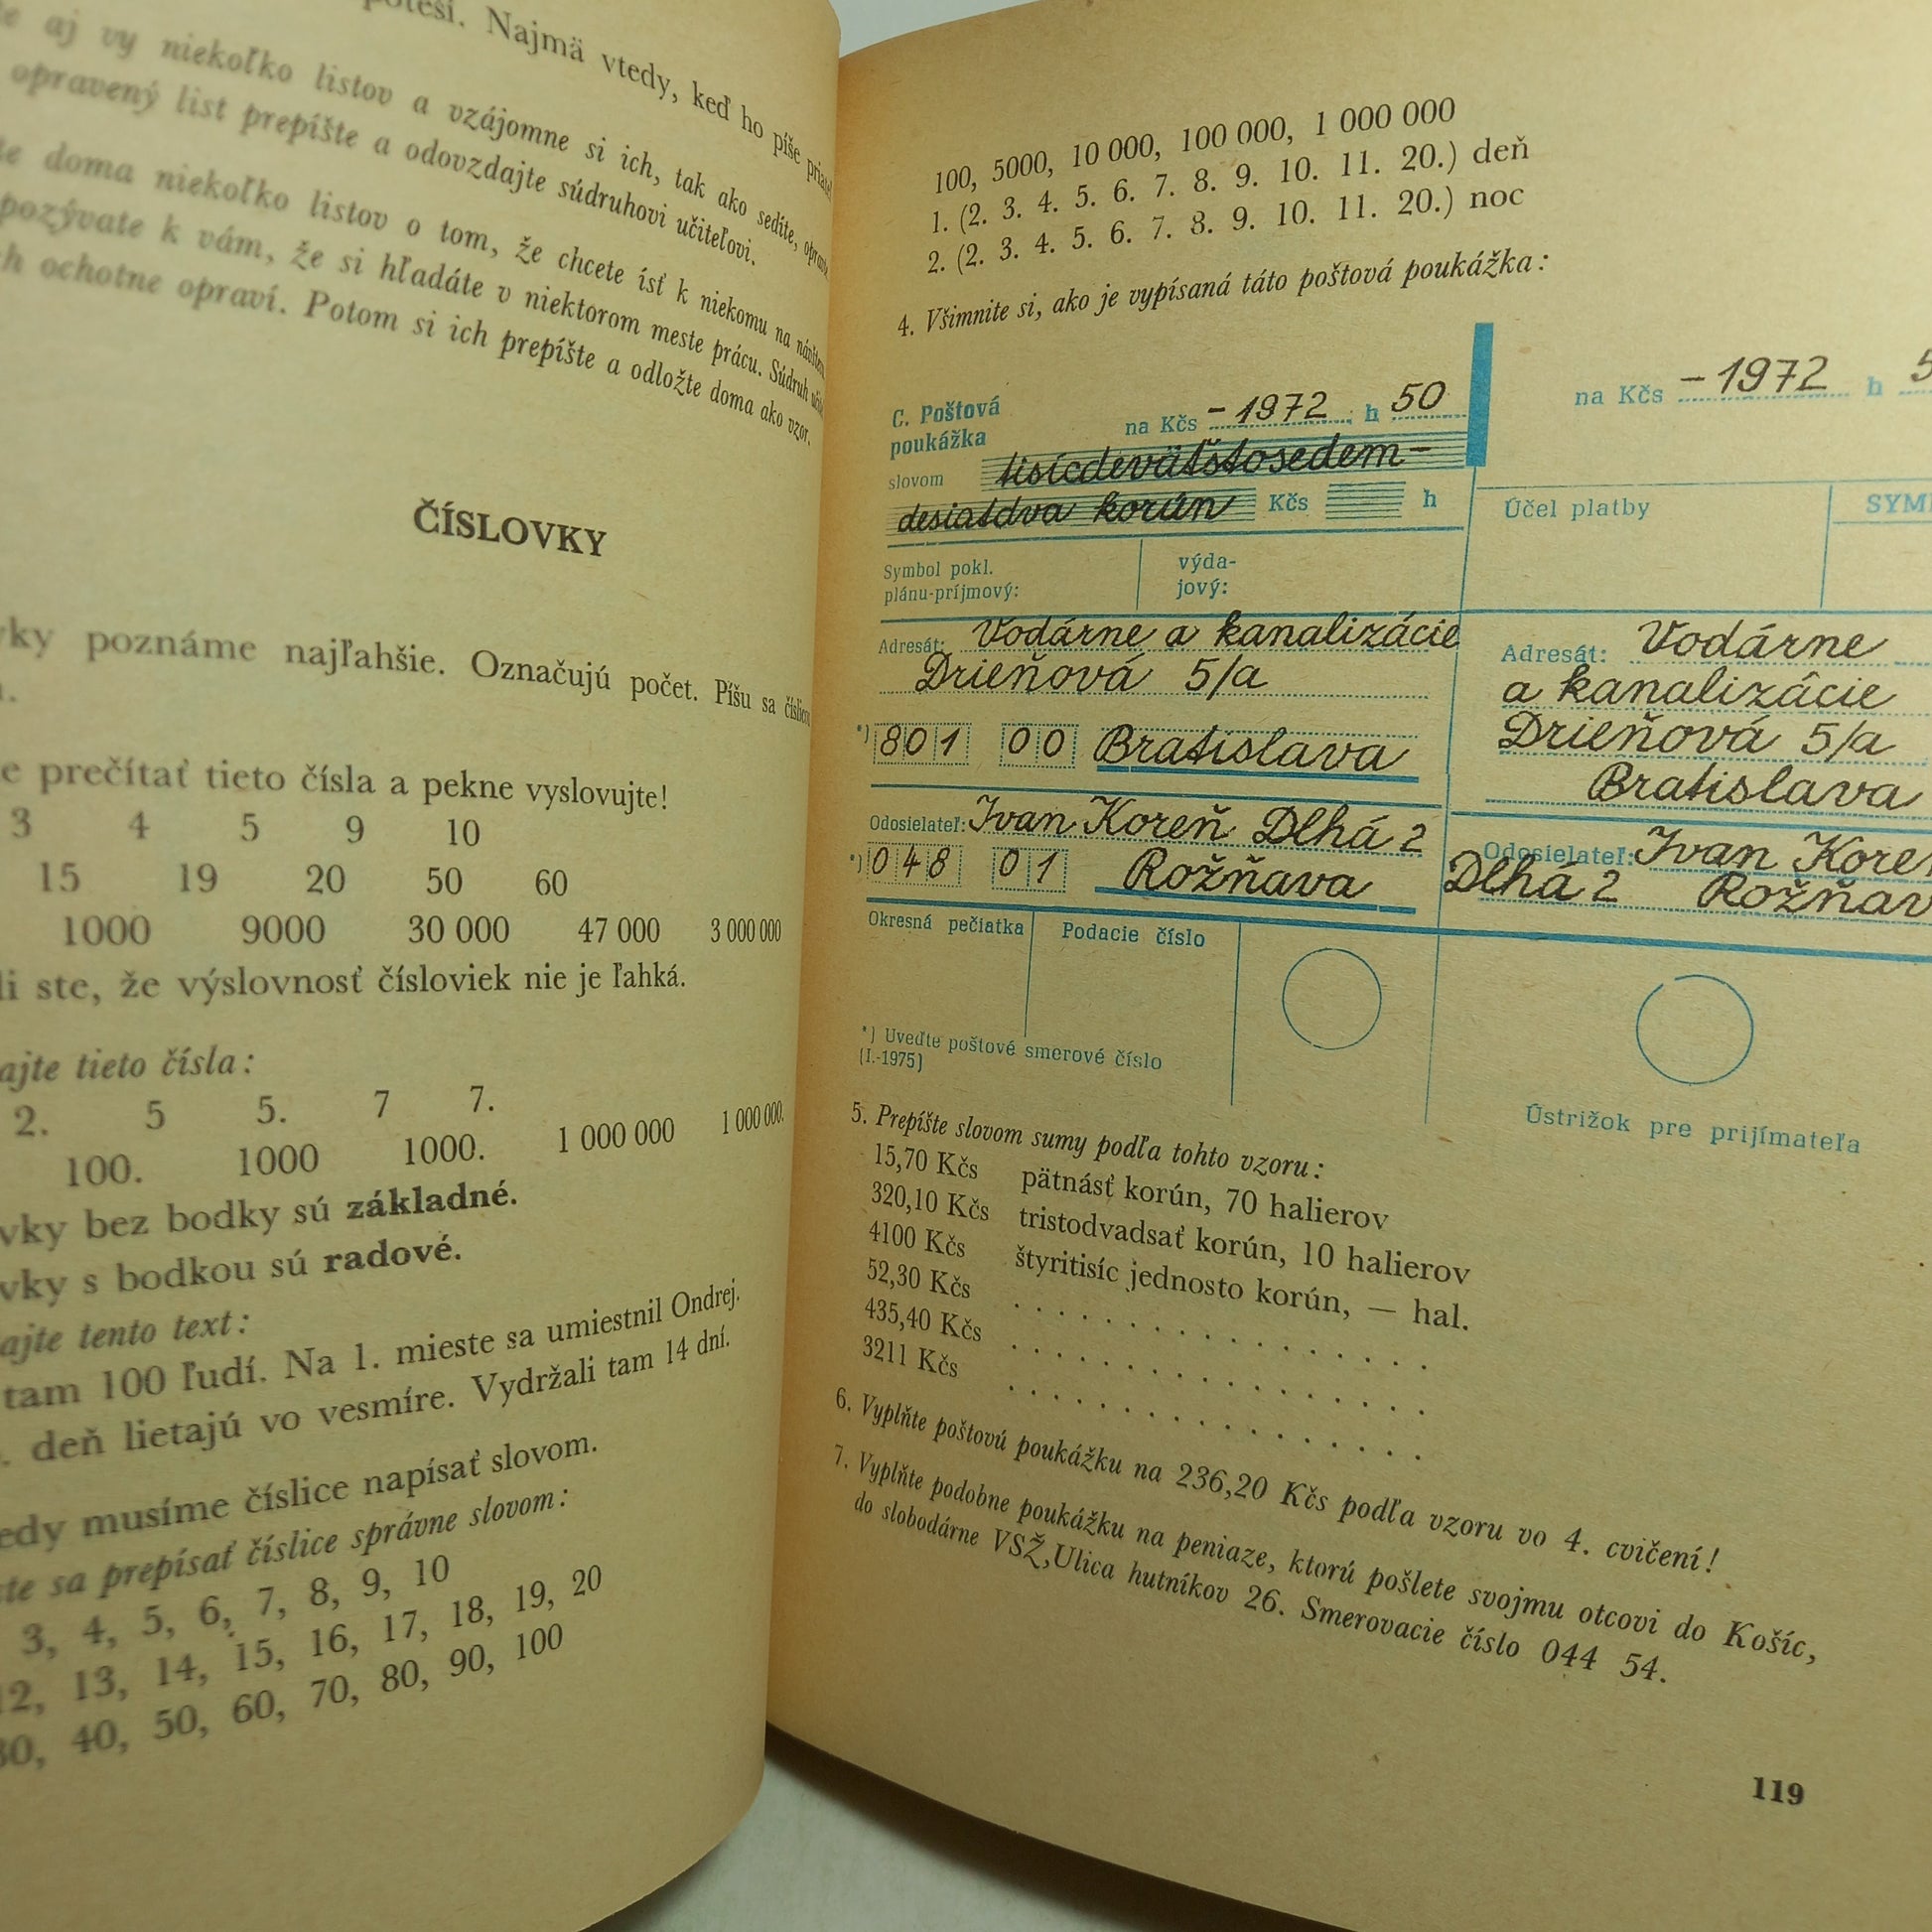 poteší. Najmä vtedy, keď ho píše priateľ
aj vy niekoľko listov a vzájomne si ich, tak ako sedíte, opravte
opravený list prepíšte a odovzdajte súdruhovi učiteľovi.
doma niekoľko listov o tom, že chcete ísť k niekomu na návštevu
pozývate k vám, že si hľadáte v niektorom meste prácu. Súdruh
ochotne opraví. Potom si ich prepíšte a odložte doma ako vzor.
ČÍSLOVKY
poznáme najľahšie. Označujú počet. Píšu sa číslicou
prečítať tieto čísla a pekne vyslovujte!
3 4 5 9 10
15 19 20 50 60
1000 9000 30 000 47 000 3 000 000
li ste, že výslovnosť čísloviek nie je ľahká.
ajte tieto čísla:
2. 5 5. 7 7.
100. 1000 1000. 1 000 000 1 000 000.
vky bez bodky sú základné.
vky s bodkou sú radové.
ajte tento text:
tam 100 ľudí. Na 1. mieste sa umiestnil Ondrej.
deň lietajú vo vesmíre. Vydržali tam 14 dní.
edy musíme číslice napísať slovom.
te sa prepísať číslice správne slovom:
3, 4, 5, 6, 7, 8, 9, 10
12, 13, 14, 15, 16, 17, 18, 19, 20
30, 40, 50, 60, 70, 80, 90, 100
100, 5000, 10 000, 100 000, 1 000 000
1. (2. 3. 4. 5. 6. 7. 8. 9. 10. 11. 20.) deň
2. (2. 3. 4. 5. 6. 7. 8. 9. 10. 11. 20.) noc
4. Všimnite si, ako je vypísaná táto poštová poukážka:
C. Poštová
poukážka
na Kčs -1972 h 50
slovom tisícdeväťstosedem-
desiatdva korún Kčs h
Symbol pokl.
plánu-príjmový:
výda-
jový:
Adresát: Vodárne a kanalizácie
Drieňová 5/a
*) 801 00 Bratislava
Odosielateľ: Ivan Koreň Dlhá 2
*) 048 01 Rožňava
Okresná pečiatka Podacie číslo
*) Uveďte poštové smerové číslo
(I.-1975)
na Kčs -1972 h 5
Účel platby SYM
Adresát: Vodárne
a kanalizácie
Drieňová 5/a
Bratislava
Odosielateľ: Ivan Kore
Dlhá 2 Rožňav
Ústrižok pre prijímateľa
5. Prepíšte slovom sumy podľa tohto vzoru:
15,70 Kčs pätnásť korún, 70 halierov
320,10 Kčs tristodvadsať korún, 10 halierov
4100 Kčs štyritisíc jednosto korún, — hal.
52,30 Kčs . . . . . . . . . . . . . .
435,40 Kčs . . . . . . . . . . . . . .
3211 Kčs . . . . . . . . . . . . . .
6. Vyplňte poštovú poukážku na 236,20 Kčs podľa vzoru vo 4. cvičení!
7. Vyplňte podobne poukážku na peniaze, ktorú pošlete svojmu otcovi do Košíc,
do slobodárne VSŽ,Ulica hutníkov 26. Smerovacie číslo 044 54.
119